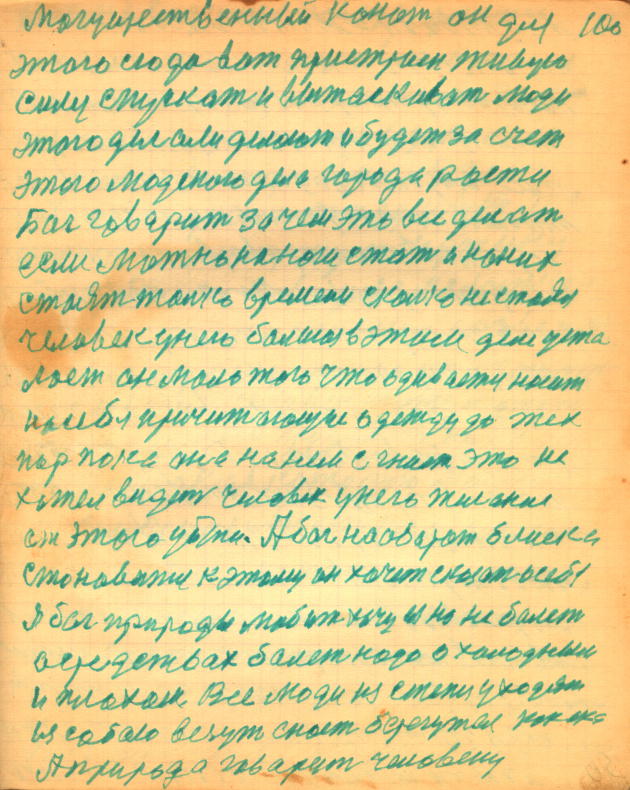 Могущественный канат он для 100
этого сюда ват пристроен живую
силу спускат и вытаскиват люди
этого делали делают и будет за счет
этого людского дела города расти
Бог говарит зачем это все делат
если можно на ноги стат и на них
стоят толко времени сколко не стоял
человек у него болшая в этом деле уста
лост он мало того что одиваетця носит
на себя причитающую одежду до тех
пор пока она на нем сгниет это не
хотел видет человек у него желание
от этого уйти. А бог наоборот блиско
становитця к этому он хочет сказат о себе
Я бог природы любит хочу но не болет
о средствах болет надо о холодным
и плохом Все люди из степи уходят
из собою везут скот берегутся как око
А природа говарит человеку